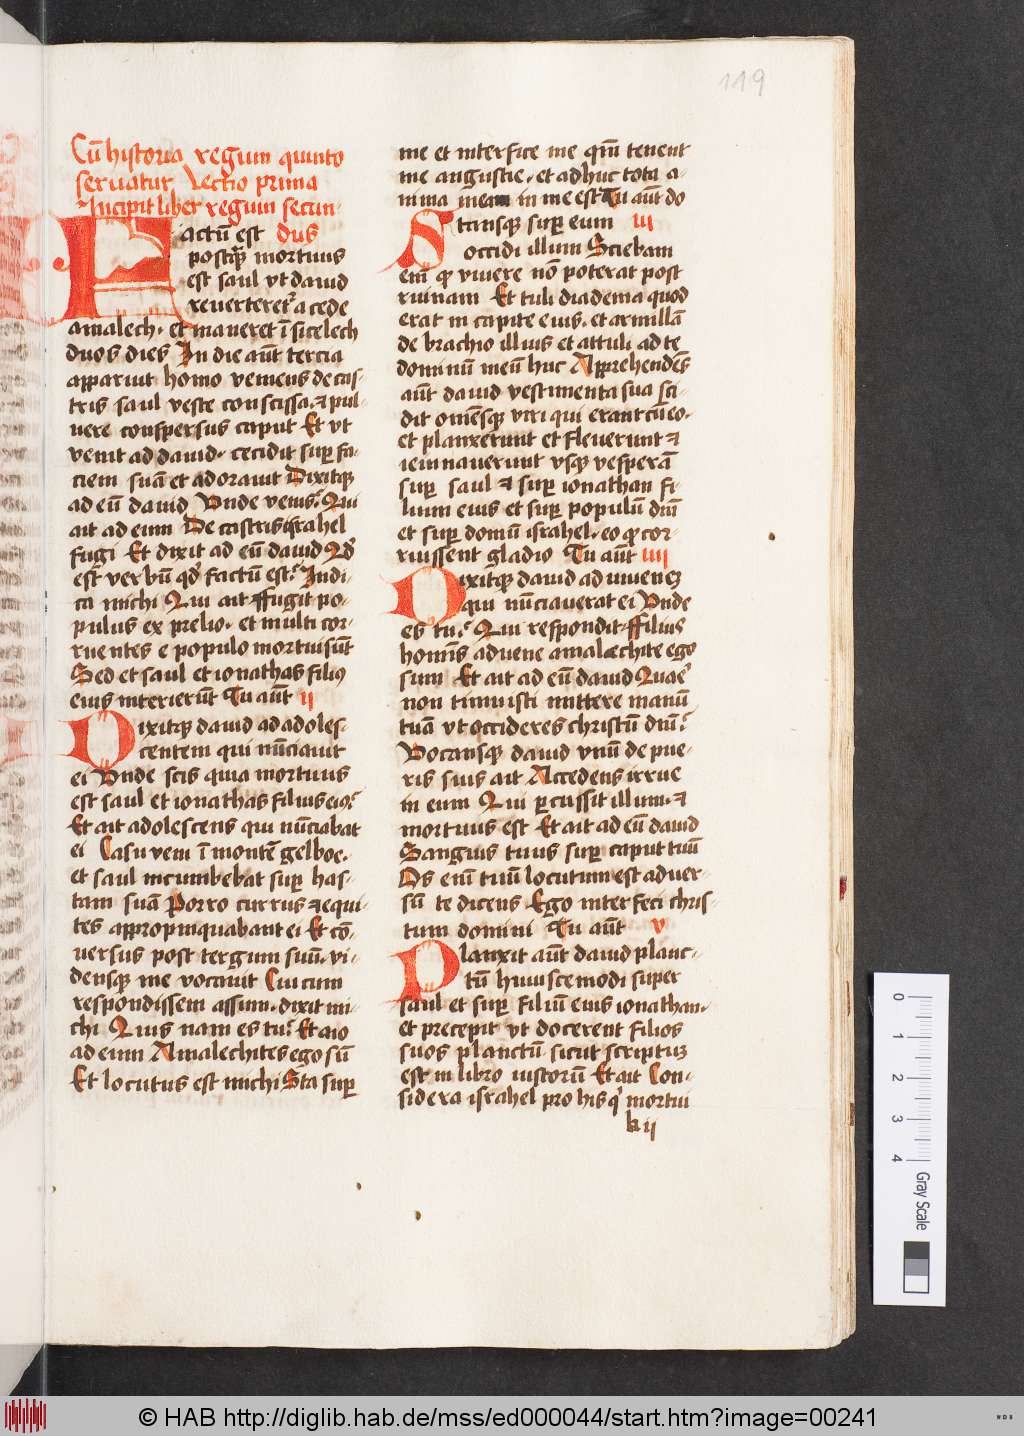 119
Cū historia regum quinto
seruatur Lectio prima
Incipit liber regum secun
Factū est dus
postq̄ mortuus
est saul vt dauid
reuerteret᷑ a cede
amalech · et maneret ī sicelech
duos dies In die aūt tercia
apparuit homo veniens de cas-
tris saul veste conscissa · ⁊ pul-
uere conspersus caput Et vt
venit ad dauid · cecidit sup̱ fa-
ciem suā et adorauit Dixitq̄
ad eū dauid Vnde venis? Qui
ait ad eum De castris israhel
fugi Et dixit ad eū dauid Qd̓
est verbū qd̓ factū est? Indi-
ca michi Qui ait ffugit po-
pulus ex prelio · et multi cor-
ruentes e populo mortui sūt
Sed et saul et ionathas filiꝰ
eius interierūt Tu aūt ii
Dixitq̄ dauid ad adoles-
centem qui nūciauit
ei Vnde scis quia mortuus
est saul et ionathas filius eiꝰ?
Et ait adolescens qui nūciabat
ei Casu veni ī montē gelboe ·
et saul incumbebat sup̱ has-
tam suā Porro currus ⁊ equi-
tes appropinquabant ei Et cō-
uersus post tergum suū · vi-
densq̄ me vocauit Cui cum
respondissem assum · dixit mi-
chi Quis nam es tu? Et aio
ad eum Amalechites ego sū
Et locutus est michi Sta sup̱
me et interfice me qm̄ tenent
me angustie · et adhuc tota a-
nima mea in me est Tu aūt do
Stansq̄ sup̱ eum iii
occidi illum Sciebam
em̄ ꝙ viuere nō poterat post
ruinam Et tuli diadema quod
erat in capite eius · et armillā
de brachio illius et attuli ad te
dominū meū huc Apprehendēs
aūt dauid vestimenta sua sci-
dit omēsq̄ viri qui erant cū eo ·
et planxerunt et fleuerunt ⁊
ieiunauerunt vsq̄ vesperā
sup̱ saul ⁊ sup̱ ionathan fi-
lium eius et sup̱ populū dn̄i
et sup̱ domū israhel · eo ꝙ cor-
ruissent gladio Tu aūt iiii
Dixitq̄ dauid ad iuuenē
qui nūciauerat ei Vnde
es tu? Qui respondit · ffilius
hominis aduene amalechite ego
sum Et ait ad eū dauid Quare
non timuisti mittere manū
tuā vt occideres christū dn̄i?
Vocansq̄ dauid vnū de pue-
ris suis ait Accedens irrue
in eum Qui ꝑcussit illum · ⁊
mortuus est Et ait ad eū dauid
Sanguis tuus sup̱ caput tuū
Os em̄ tuū locutum est aduer-
sū te dicens Ego interfeci chris-
tum domini Tu aūt v
Planxit aūt dauid planc-
tū huiuscemodi super
saul et sup̱ filiū eius ionathan ·
et precepit vt docerent filios
suos planctū sicut scriptū
est in libro iustorū Et ait Con-
sidera israhel pro his qͥ mortui
k ii
0 1 2 3 4 Gray Scale
© HAB http://diglib.hab.de/mss/ed000044/start.htm?image=00241